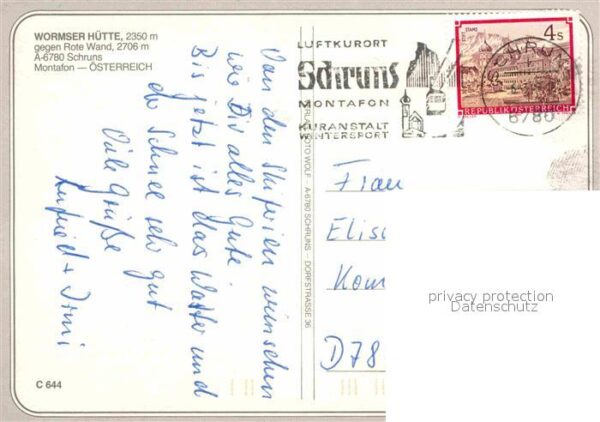 WORMSER HÜTTE, 2350 m
gegen Rote Wand, 2706 m
A-6780 Schruns
Montafon — ÖSTERREICH
Von den Skiferien wünschen
wir Dir alles Gute.
Bis jetzt ist das Wetter und
der Schnee sehr gut
Viele Grüße
+ Irmi
C 644
VERLAG FOTO WOLF - A-6780 SCHRUNS - DORFSTRASSE 36
LUFTKURORT
Schruns
MONTAFON
KURANSTALT
WINTERSPORT
STIFT STAMS
4 S
REPUBLIK ÖSTERREICH
SCHRUNS
6780
Frau
Elis
Kon
D78
privacy protection
Datenschutz